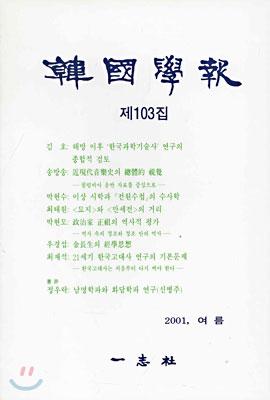 韓國學報
제103집
김 호: 해방 이후 '한국과학기술사' 연구의
종합적 검토
송방송: 近現代音樂史의 總體的 視覺
— 콜럼비아 음반 자료를 중심으로 —
박현수: 이상 시학과 「전원수첩」의 수사학
최태원: <묘지>와 <만세전>의 거리
박현모: 政治家 正祖의 역사적 평가
— 역사 속의 정조와 정조 안의 역사 —
우경섭: 金長生의 經學思想
최재석: 21세기 한국고대사 연구의 기본문제
— 한국고대사는 처음부터 다시 써야 한다 —
書評
정우락: 남명학파와 화담학파 연구(신병주)
2001, 여름
一志社
YES24